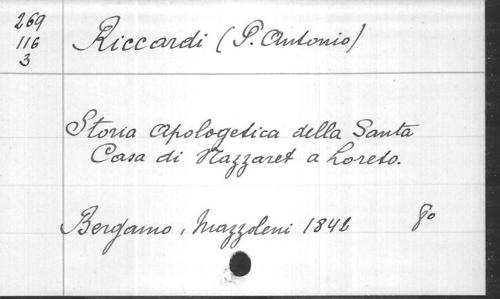 269
116
3
Riccardi (P. Antonio)
Storia Apologetica della Santa
Casa di Nazzaret a Loreto.
Bergamo, Mazzoleni 1842 8º